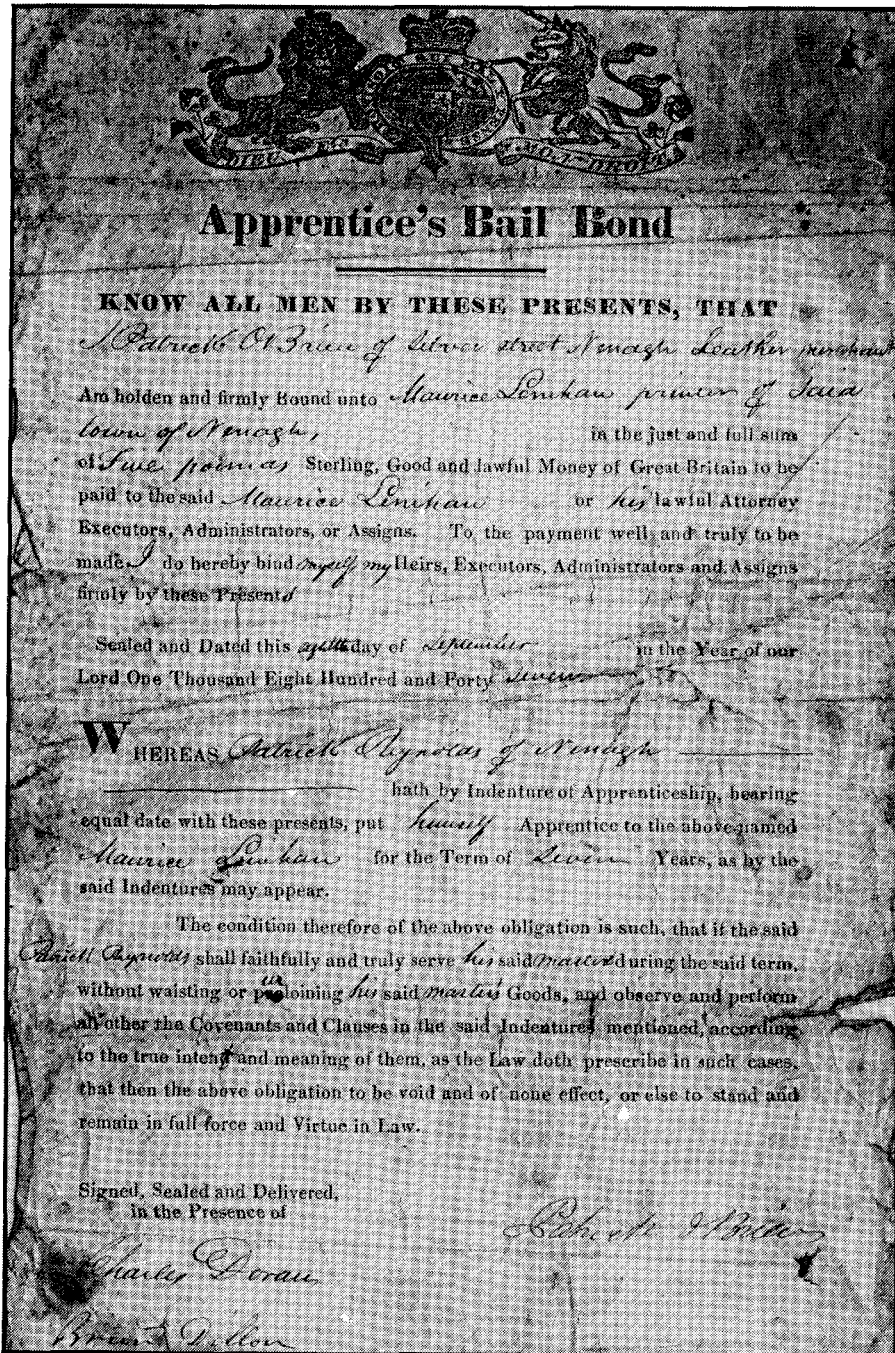 DIEU ET MON DROIT
Apprentice's Bail Bond
KNOW ALL MEN BY THESE PRESENTS, THAT
I Patrick O'Brien of Silver street Nenagh Leather merchant
Am holden and firmly Bound unto Maurice Lenihan printer of said
town of Nenagh, in the just and full sum
of Five pounds Sterling, Good and lawful Money of Great Britain to be
paid to the said Maurice Lenihan or his lawful Attorney
Executors, Administrators, or Assigns. To the payment well and truly to be
made I do hereby bind myself my Heirs, Executors, Administrators and Assigns
firmly by these Presents
Sealed and Dated this day of September in the Year of our
Lord One Thousand Eight Hundred and Forty Seven
WHEREAS Patrick Reynolds of Nenagh
hath by Indenture of Apprenticeship, bearing
equal date with these presents, put himself Apprentice to the above-named
Maurice Lenihan for the Term of Seven Years, as by the
said Indentures may appear.
The condition therefore of the above obligation is such, that if the said
Patrick Reynolds shall faithfully and truly serve his said master during the said term,
without waisting or purloining his said master's Goods, and observe and perform
all other the Covenants and Clauses in the said Indentures mentioned, according
to the true intent and meaning of them, as the Law doth prescribe in such cases,
that then the above obligation to be void and of none effect, or else to stand and
remain in full force and Virtue in Law.
Signed, Sealed and Delivered,
in the Presence of
Patrick O'Brien
Charles Doran
Brien Dillon